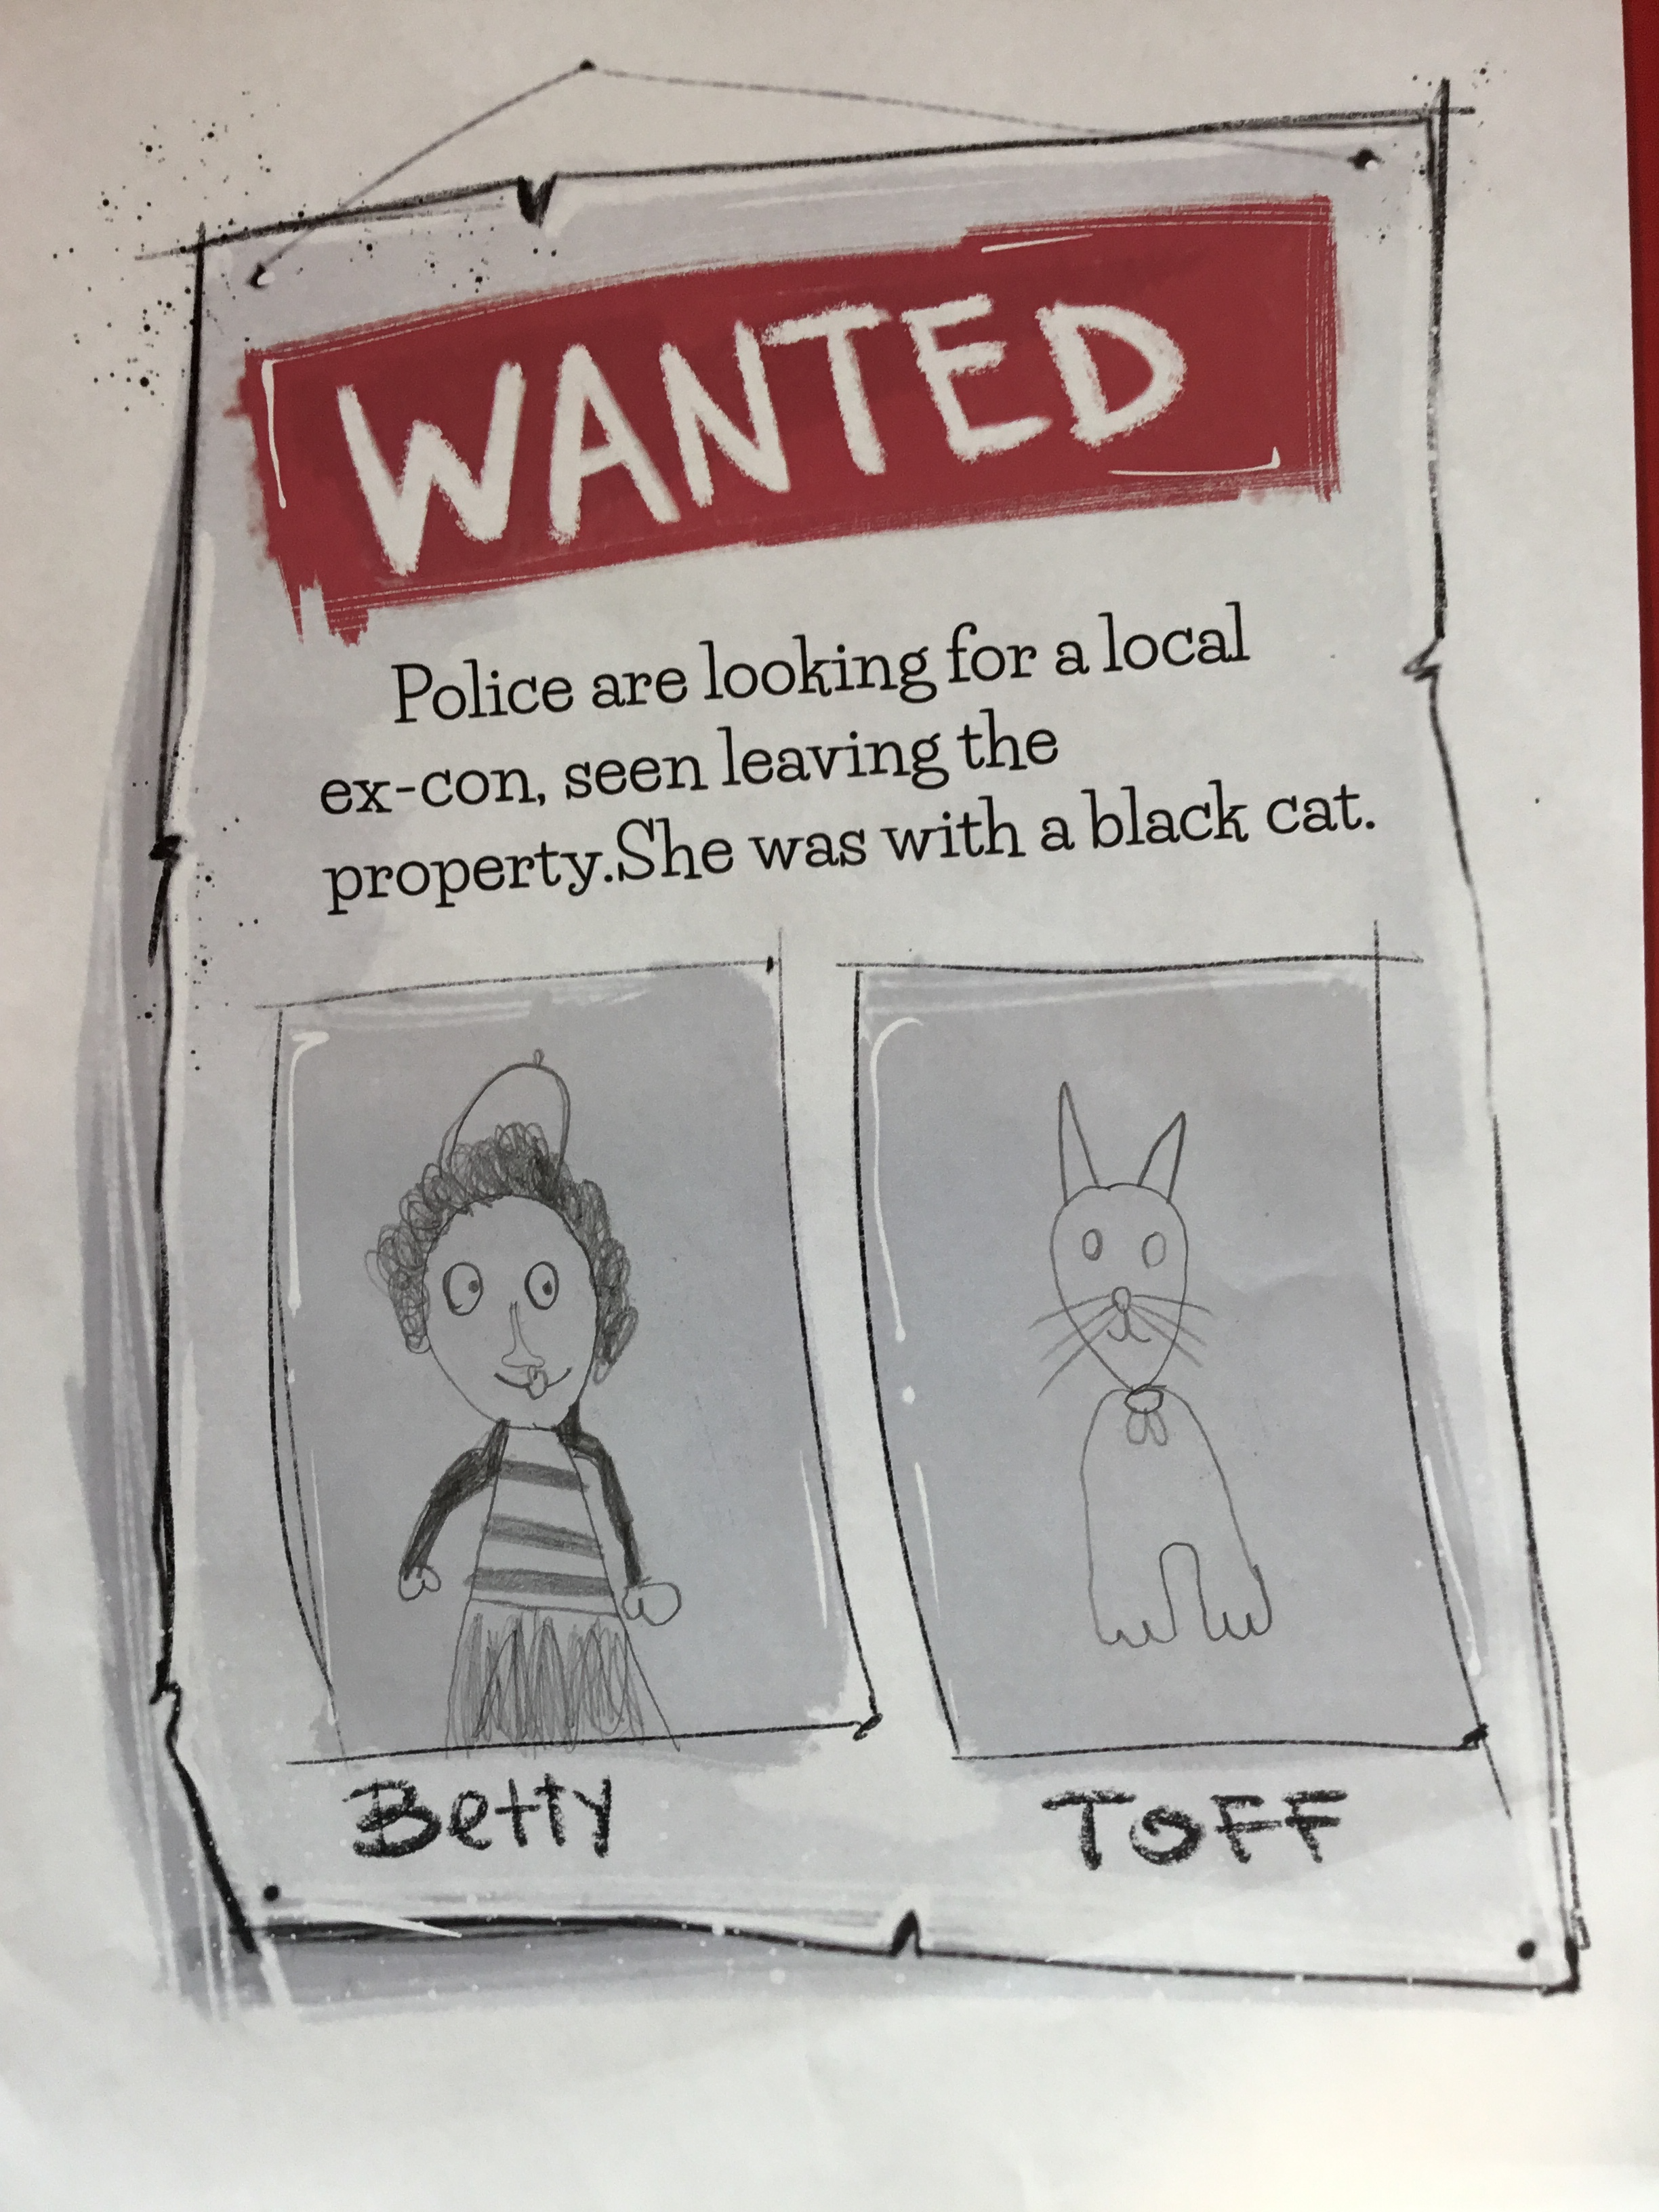 WANTED
Police are looking for a local
ex-con, seen leaving the
property.She was with a black cat.
Betty
TOFF